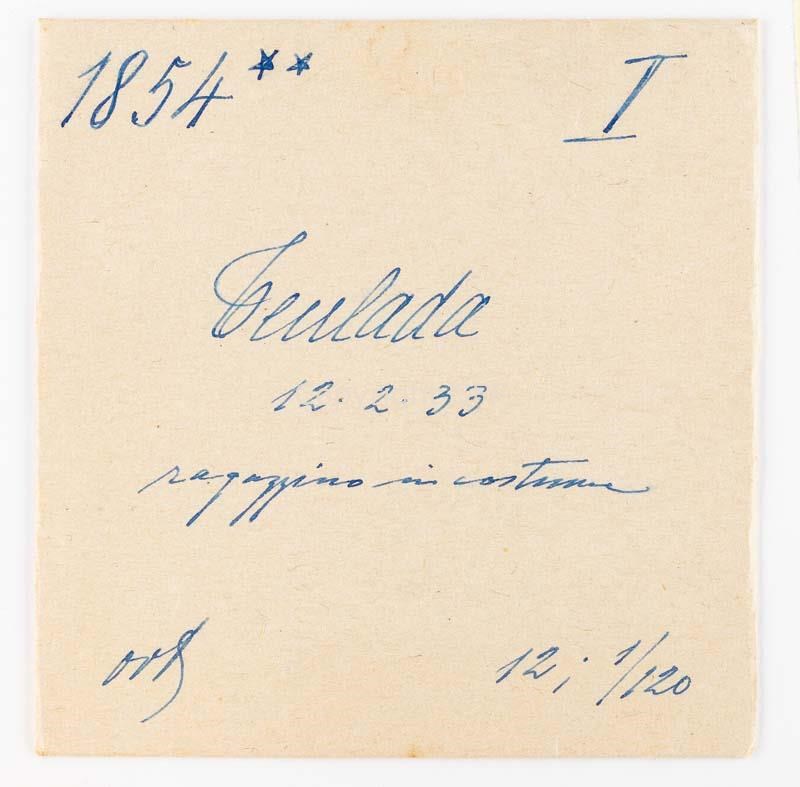 1854**
I
Teulada
12. 2. 33
ragazzino in costume
12; 1/120